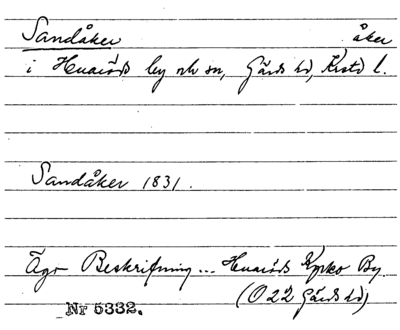 Sandåker åker
i Huaröds by och sn, Gärds hd, Krstd l.
Sandåker 1831.
Äga Beskrifning... Huaröds Kyrko By.
(O 22 Gärds hd)
Nr 5332.